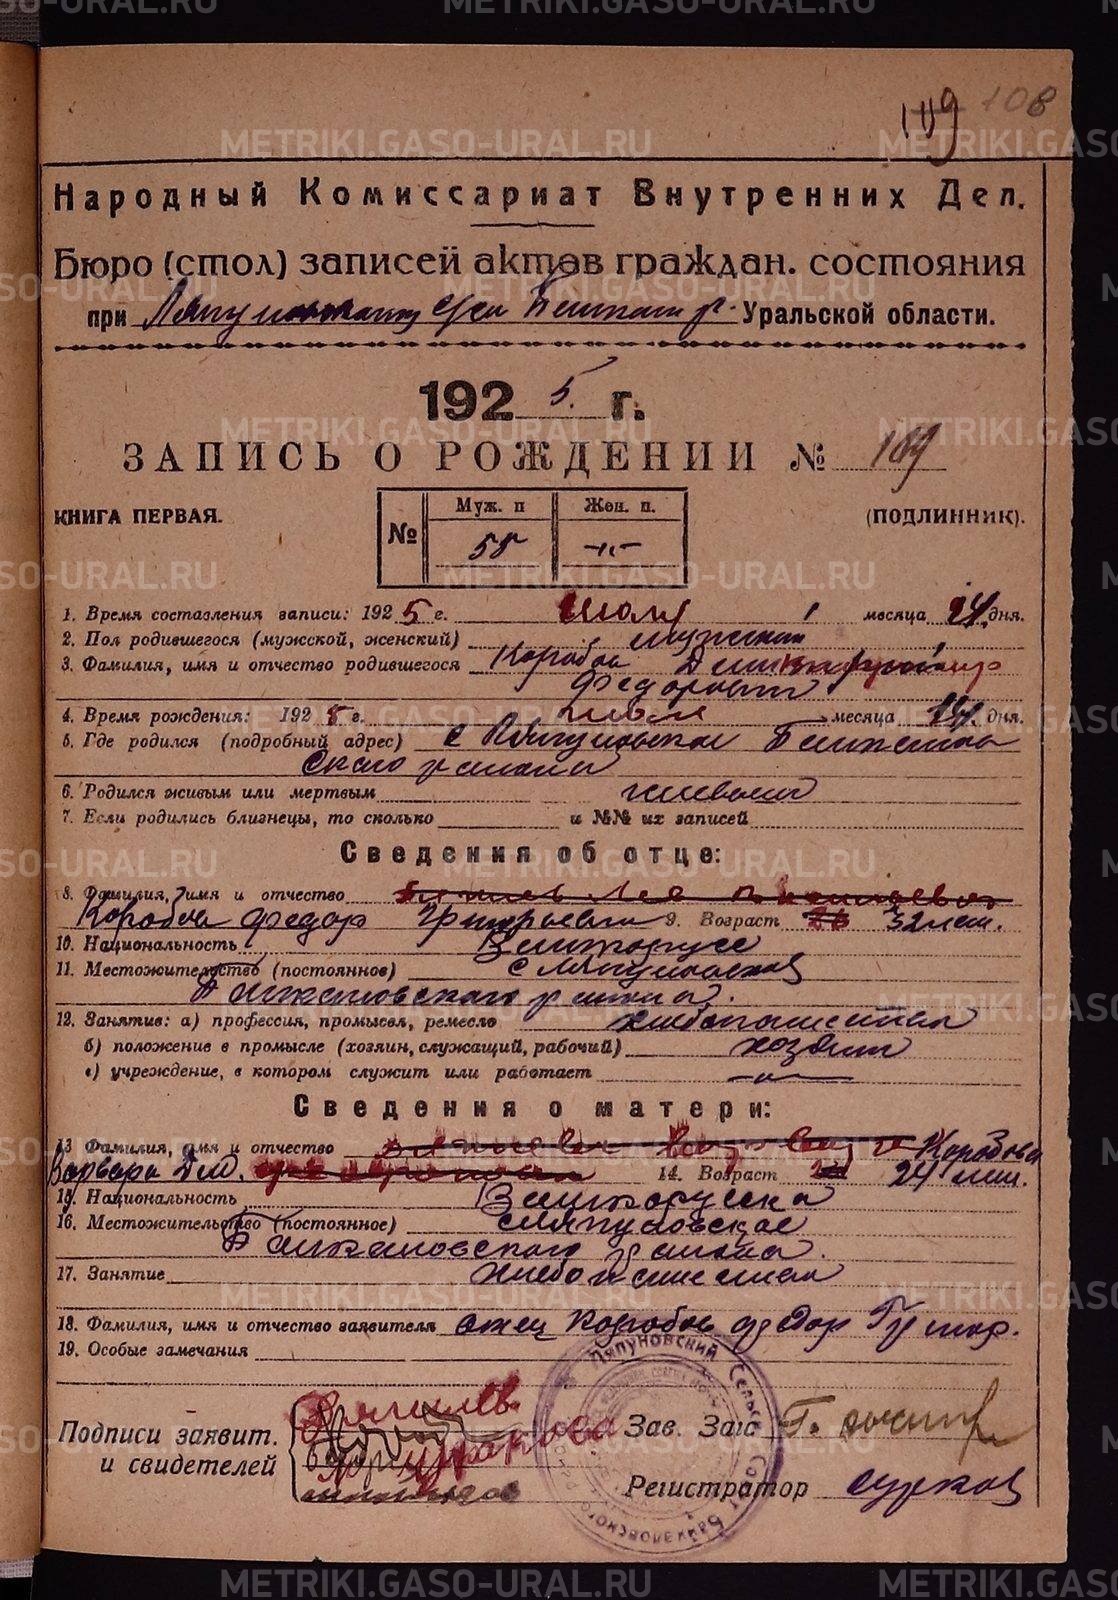 109 108
Народный Комиссариат Внутренних Дел.
Бюро (стол) записей актов граждан. состояния
при Уральской области.
192 5. г.
ЗАПИСЬ О РОЖДЕНИИ № 109
КНИГА ПЕРВАЯ.
(ПОДЛИННИК).
№ Муж. п Жен. п.
58 -"-
1. Время составления записи: 192 5 г. месяца 24 дня.
2. Пол родившегося (мужской, женский) мужской
3. Фамилия, имя и отчество родившегося Коробов
Федорович
4. Время рождения: 192 5 г. июля месяца дня.
5. Где родился (подробный адрес) с Ляпуновское Байкалов
ского района
6. Родился живым или мертвым живым
7. Если родились близнецы, то сколько и №№ их записей
Сведения об отце:
8. Фамилия, имя и отчество
Коробов Федор Григорьевич 9. Возраст 32 лет.
10. Национальность Великорусс
11. Местожительство (постоянное) с Ляпуновское
Байкаловского района.
12. Занятие: а) профессия, промысел, ремесло хлебопашество
б) положение в промысле (хозяин, служащий, рабочий) хозяин
в) учреждение, в котором служит или работает -"-
Сведения о матери:
13 Фамилия, имя и отчество Коробова
Варвара 14. Возраст 24 лет.
15. Национальность Великорусска
16. Местожительство (постоянное) с Ляпуновское
Байкаловского района.
17. Занятие
18. Фамилия, имя и отчество заявителя отец Коробов Федор Григор.
19. Особые замечания
Подписи заявит.
и свидетелей
Зав. Загс
Регистратор
Ляпуновский Сельск. Совет Байкаловского
METRIKI.GASO-URAL.RU